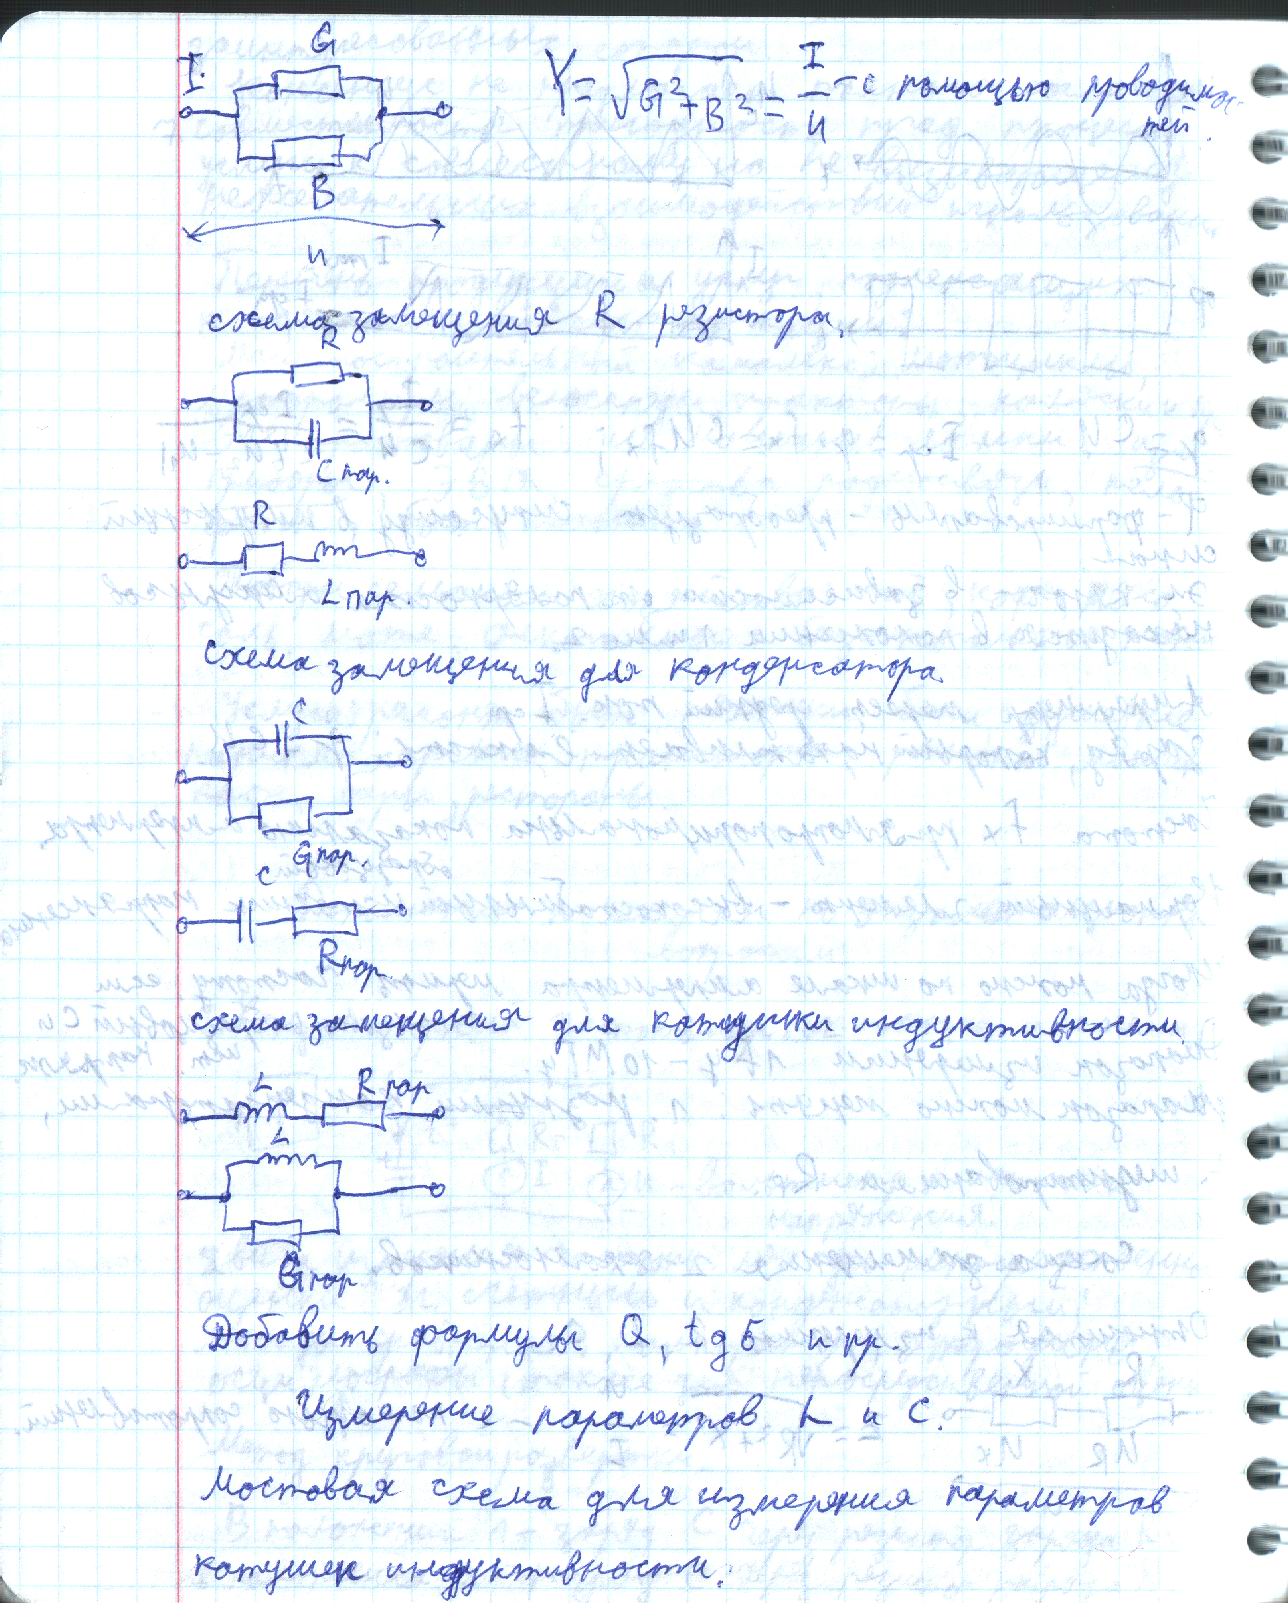 I. G
Y = √G²+B² = I/U - с помощью проводимос-
тей.
B
U
схема замещения R резистора.
R
C пар.
R
L пар.
схема замещения для конденсатора.
C
G пар.
C
R пар
схема замещения для катушки индуктивности.
L R пар
L
G пар
Добавить формулы Q, tgδ и пр.
Измерение параметров L и C.
Мостовая схема для измерения параметров
катушек индуктивности.